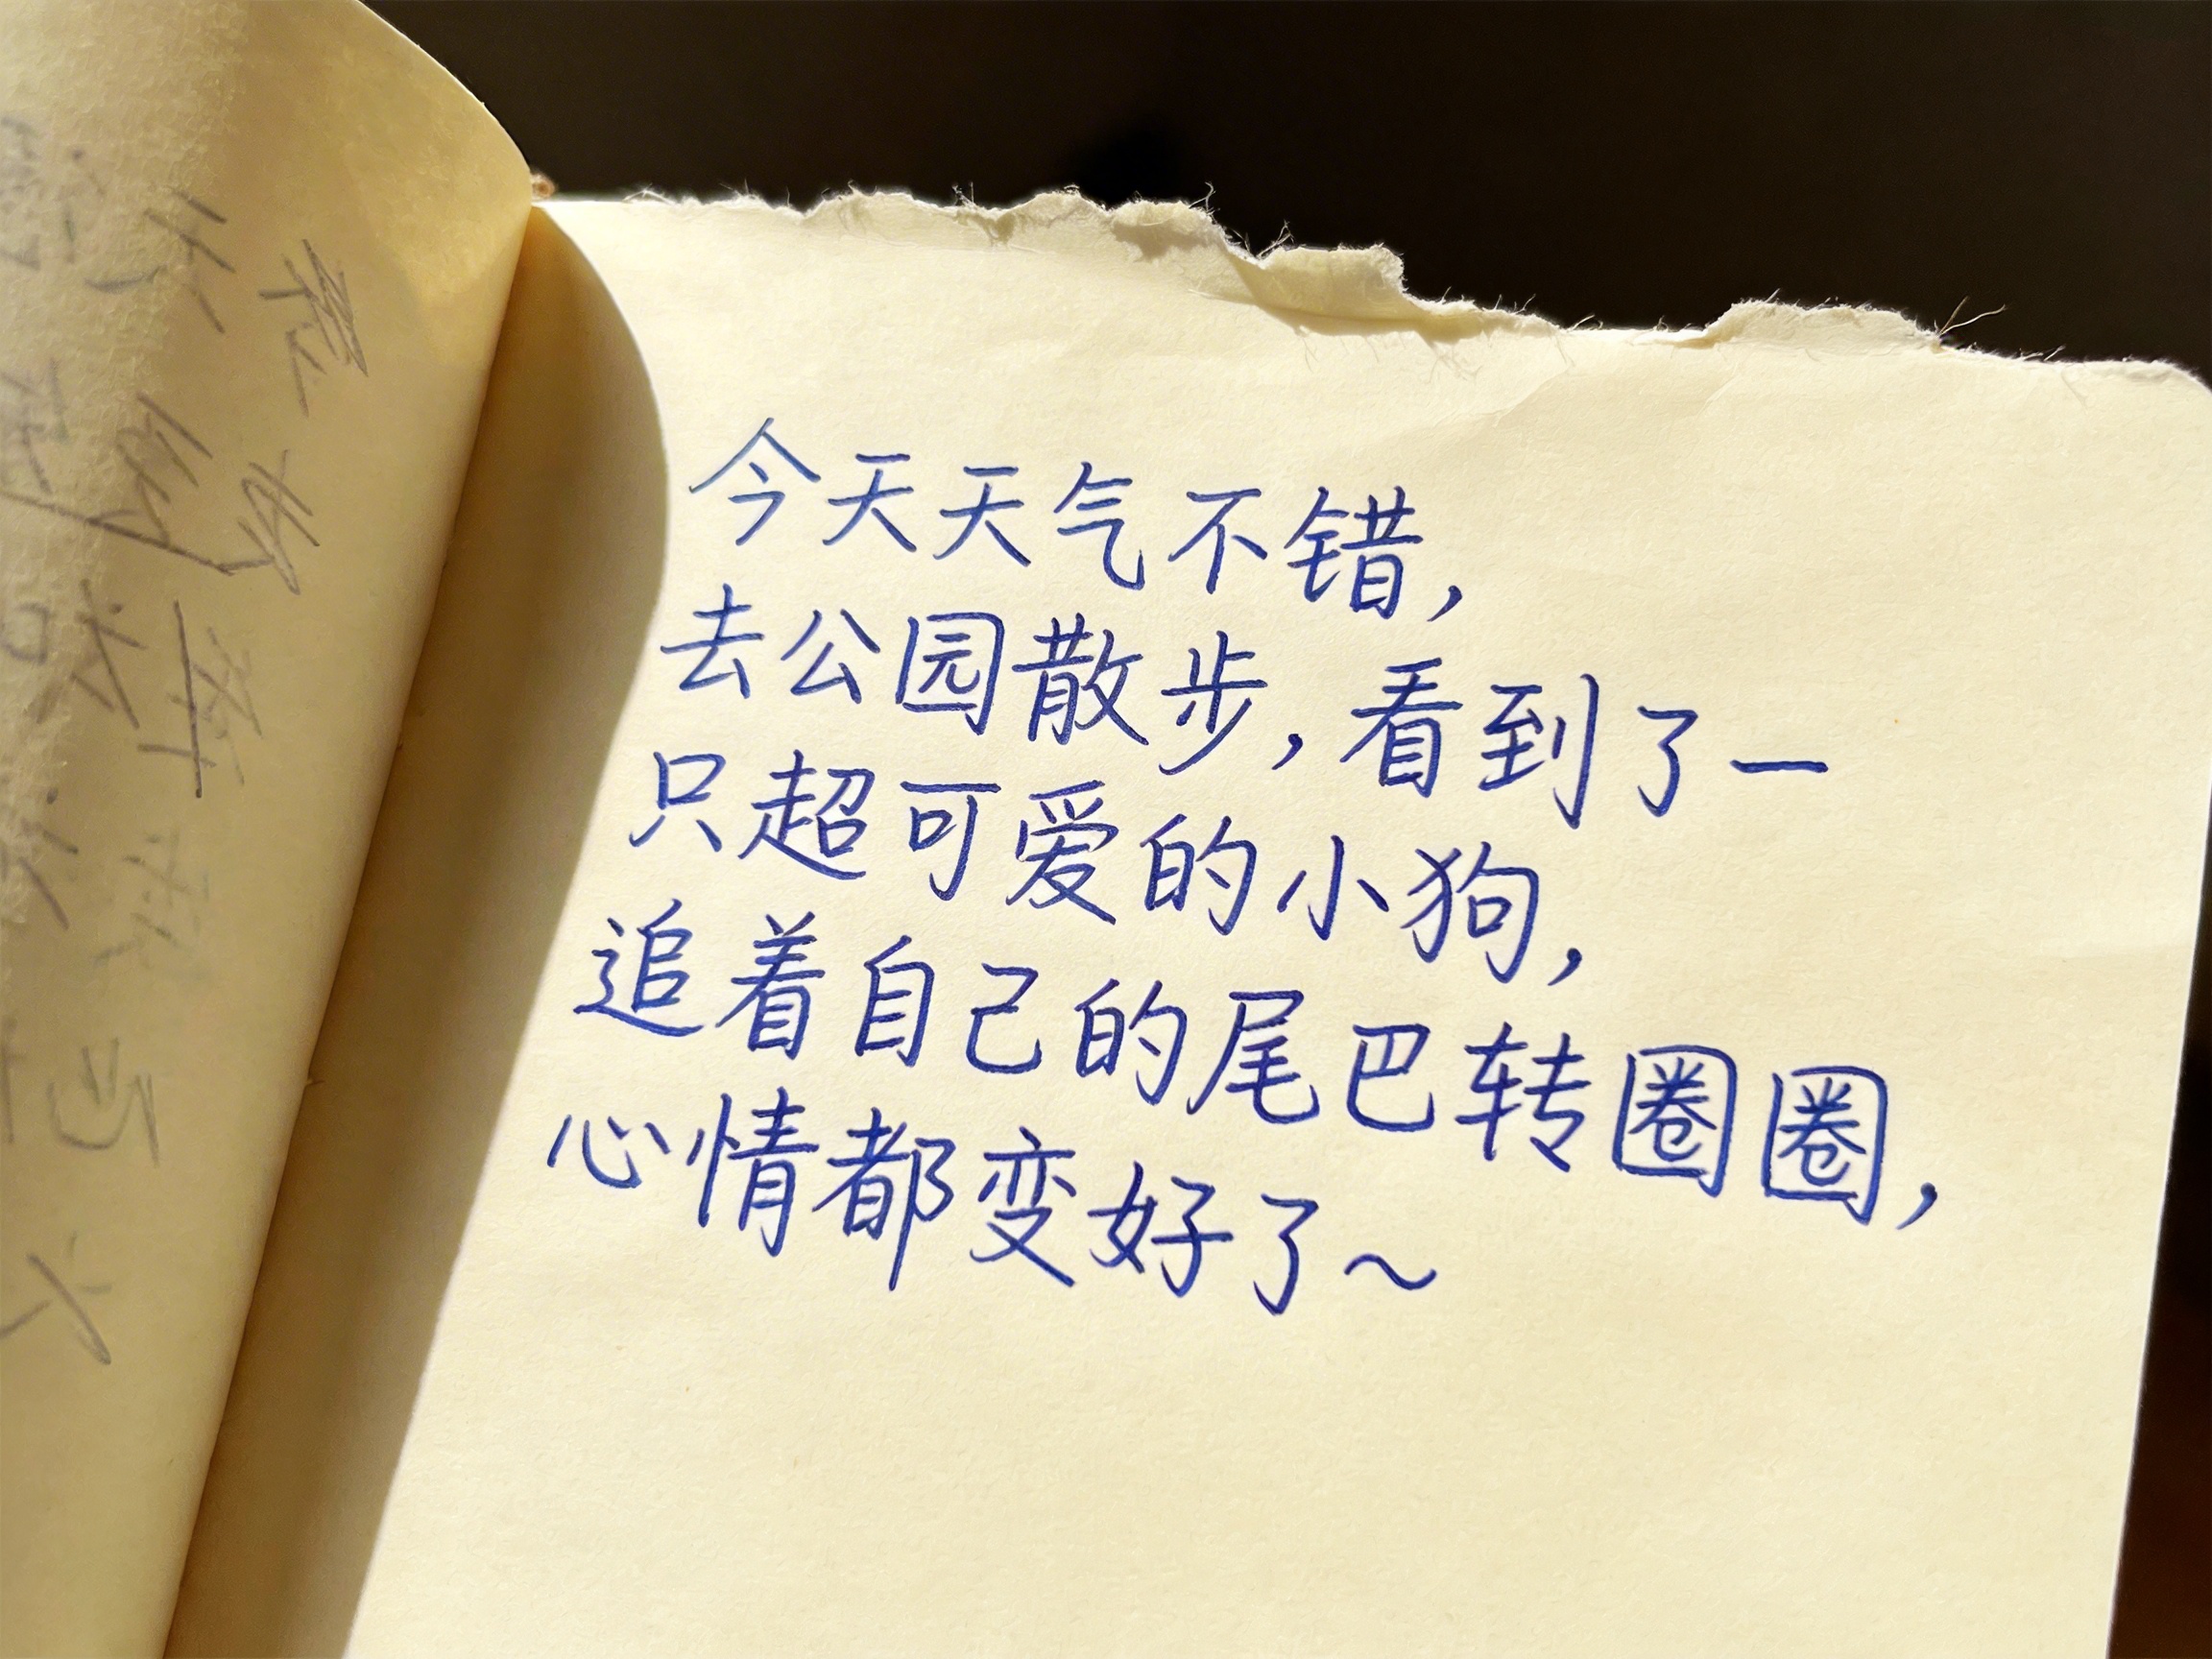 今天天气不错，
去公园散步，看到了一
只超可爱的小狗，
追着自己的尾巴转圈圈，
心情都变好了～